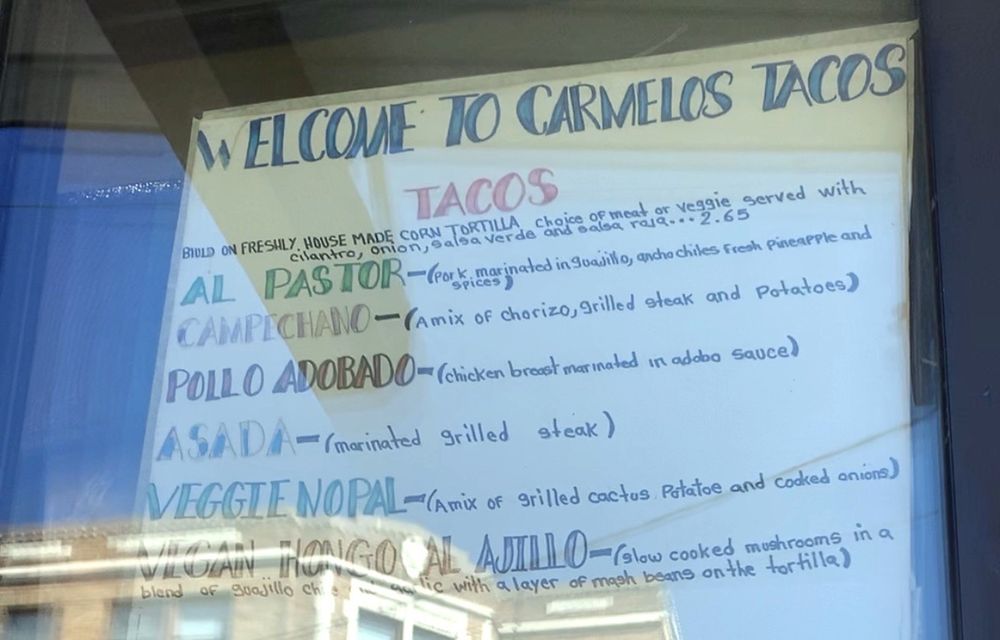 WELCOME TO CARMELOS TACOS
TACOS
BIULD ON FRESHLY HOUSE MADE CORN TORTILLA, choice of meat or veggie served with
cilantro, onion, salsa verde and salsa roja... 2.65
AL PASTOR-(pork marinated in guajillo, ancho chiles Fresh pineapple and
spices)
CAMPECHANO-(A mix of chorizo, grilled steak and Potatoes)
POLLO ADOBADO-(chicken breast marinated in adobo sauce)
ASADA-(marinated grilled steak)
VEGGIE NOPAL-(A mix of grilled cactus Potatoe and cooked onions)
VEGAN HONGO AL AJILLO-(slow cooked mushrooms in a
blend of guajillo with a layer of mash beans on the tortilla)